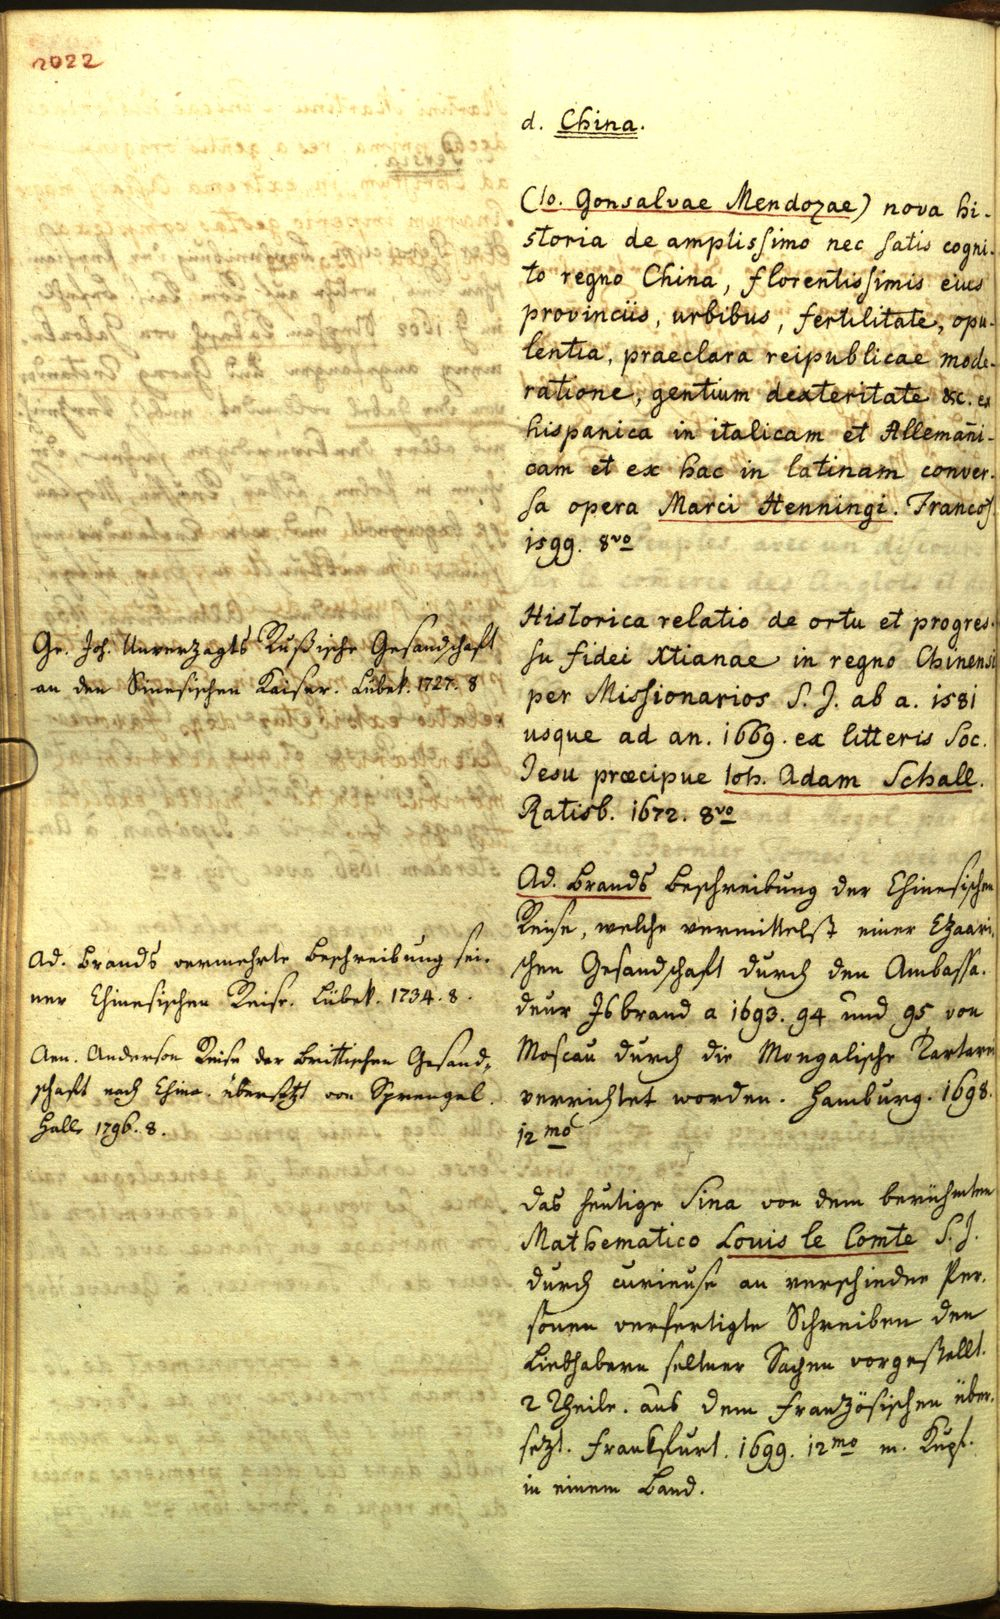 2022
d. China.
(Io. Gonsalvae Mendozae) nova hi-
storia de amplissimo nec satis cogni-
to regno China, florentissimis eius
provinciis, urbibus, fertilitate, opu-
lentia, praeclara reipublicae mode-
ratione, gentium dexteritate &c. ex
hispanica in italicam et Allemañi-
cam et ex hac in latinam conver-
sa opera Marci Henningi. Francof.
1599. 8vo
Historica relatio de ortu et progres-
su fidei Xtianae in regno Chinensi
per Missionarios S. J. ab a. 1581
usque ad an. 1669. ex litteris Soc.
Jesu præcipue Ioh. Adam Schall.
Ratisb. 1672. 8vo
Ad. Brands Beschreibung der Chinesischen
Reise, welche vermittelst einer Czaari-
schen Gesandschaft durch den Ambassa-
deur Isbrand a 1693. 94 und 95 von
Moscau durch die Mongalische Tartarei
verrichtet worden. Hamburg. 1698.
12mo
Das heutige Sina von dem berühmten
Mathematico Louis le Comte S. J.
durch curieuse an verschiedne Per-
sonen verfertigte Schreiben den
Liebhabern seltner Sachen vorgestellt.
2 Theile. aus dem Französischen über-
setzt. Frankfurt. 1699. 12mo m. Kupf.
in einem Band.
Ge. Joh. Unverzagts Rußische Gesandschaft
an den Sinesischen Kaiser. Lübek. 1727. 8
Ad. Brands vermehrte Beschreibung sei-
ner Chinesischen Reise. Lübek. 1734. 8.
Aen. Anderson Reise der Brittischen Gesand-
schaft nach China. übersetzt von Sprengel.
Halle 1796. 8.